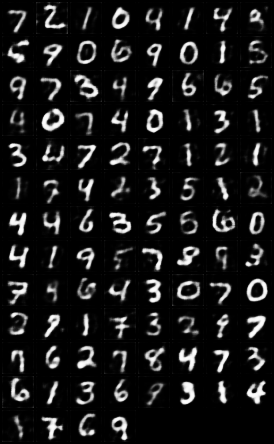 7 2 1 0 4 1 4
5 9 0 6 9 0 1 5
9 7 3 4 9 6 6 5
4 0 7 4 0 1 3 1
3 4 7 2 7 1 2 1
1 7 4 2 3 5 1 2
4 4 6 3 5 5 6 0
4 1 9 5 7 8 9 3
7 4 6 4 3 0 7 0
2 9 1 7 3 2 9 7
7 6 2 7 8 4 7 3
6 1 3 6 9 3 1 4
1 7 6 9